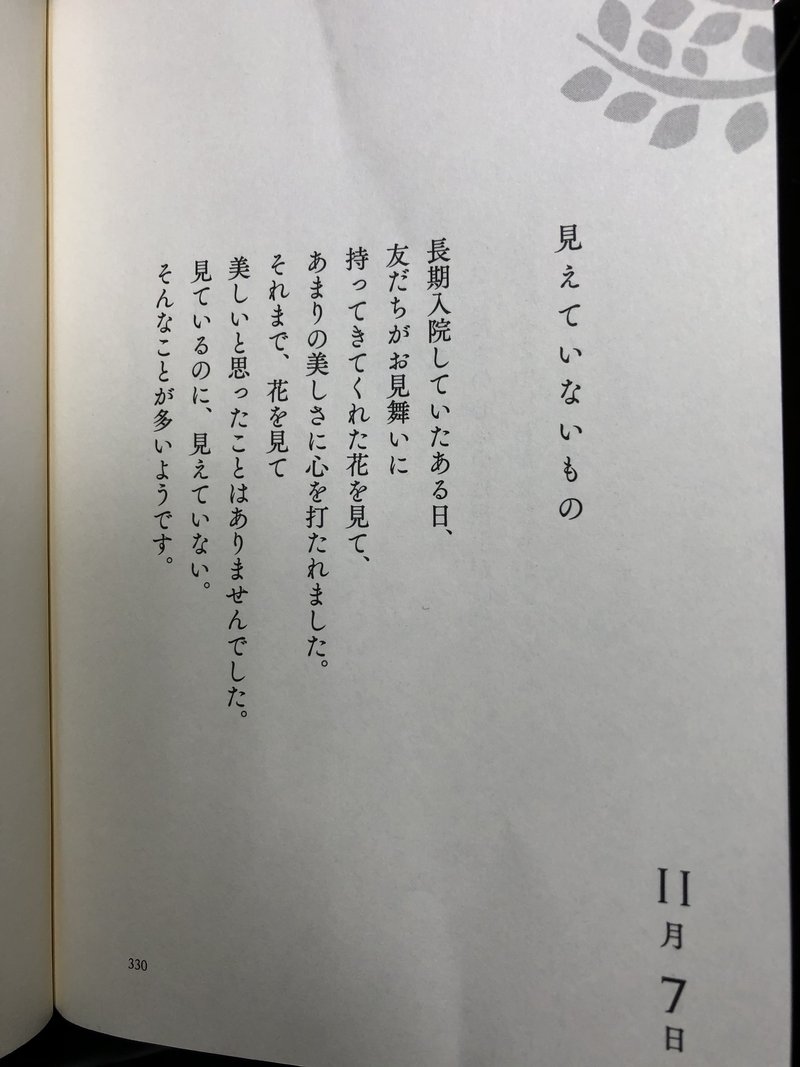 見えていないもの
長期入院していたある日、
友だちがお見舞いに
持ってきてくれた花を見て、
あまりの美しさに心を打たれました。
それまで、花を見て
美しいと思ったことはありませんでした。
見ているのに、見えていない。
そんなことが多いようです。
11月7日
330